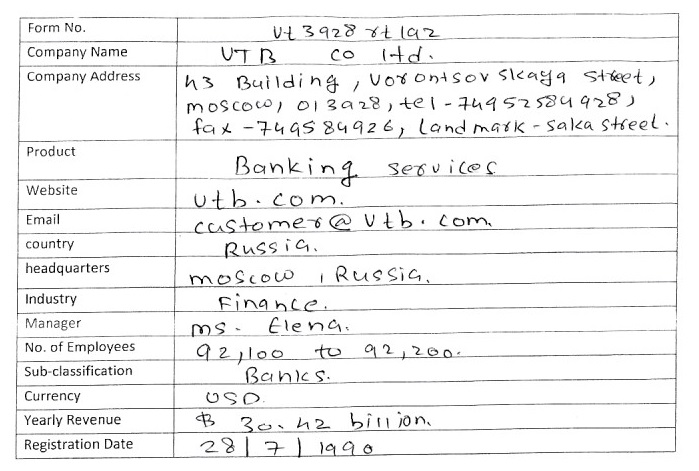 Form No. Vt3928rt1az
Company Name VTB CO ltd.
Company Address h3 Building, Vorontsovskaya Street,
moscow, 013928, tel - 74952584928,
fax - 749584926, Landmark - Saka street.
Product Banking services
Website vtb.com.
Email customer@vtb.com.
country Russia.
headquarters moscow, Russia.
Industry Finance.
Manager ms. Elena.
No. of Employees 92,100 to 92,200.
Sub-classification Banks.
Currency USD.
Yearly Revenue $ 30.42 billion.
Registration Date 28/7/1990